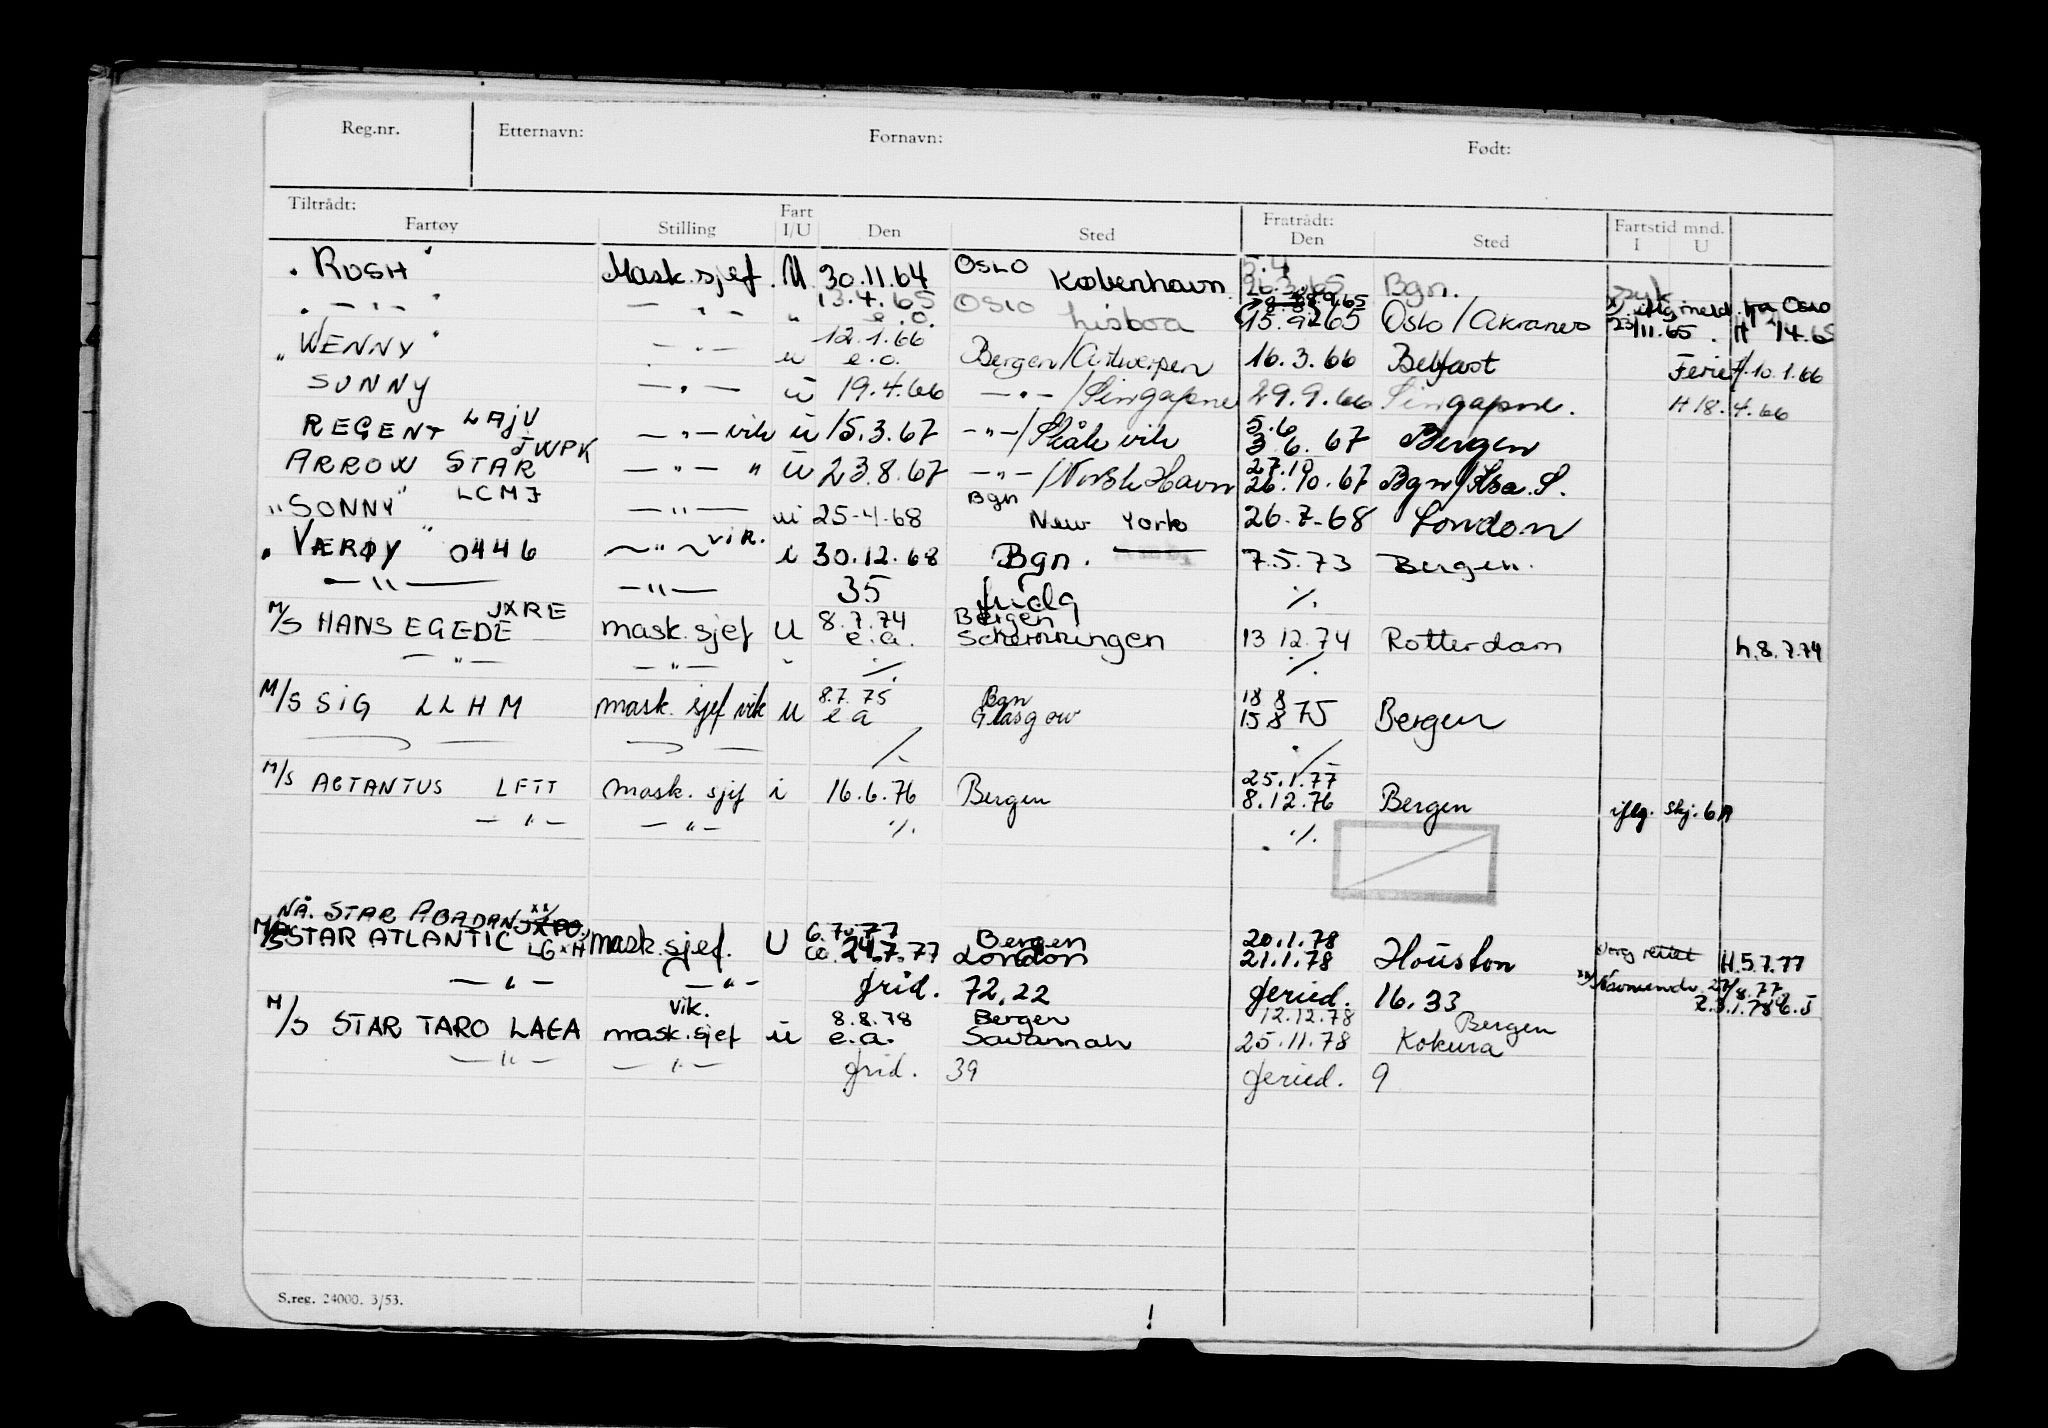 Reg.nr. Etternavn: Fornavn: Født:
Tiltrådt: Fartøy Stilling Fart I/U Den Sted Fratrådt: Den Sted Fartstid mnd. I U
"RUSH" Mask.sjef. U 30.11.64 OSLO København. 26.3.65 Bgn. syk
" — " — " — " — " 13.4.65 e.o. OSLO Lisboa 15.9.65 Oslo/Akranes 23/11.65. H 2/4.65
"WENNY" — " — u 12.1.66 e.o. Bergen/Antwerpen 16.3.66 Belfast Ferie f/. 10.1.66
SUNNY — " — u 19.4.66 — " — /Singapore 29.9.66 Singapore. H 18.4.66
REGENT LAJV — " — vik u 15.3.67 — " — /Skålevik 5.6 3.6.67 Bergen
ARROW STAR JWPK — " — " u 23.8.67 — " — /Norsk Havn 27.10 26.10.67 Bgn/Kba. S.
"SONNY" LCMJ — " — u 25-4-68 Bgn New York 26.7-68 London
"VÆRØY" 0446 — " — vik. i 30.12.68 Bgn. 7.5.73 Bergen.
— " — — " — 35 fridg ./.
M/S HANS EGEDE JXRE mask.sjef U 8.7.74 e.a. Bergen Schevningen 13 12.74 Rotterdam h.8.7.74
— " — — " — " ./. ./.
M/S SIG LLHM mask. sjef vik u 8.7.75 e a Bgn Glasgow 18 8 15 8 75 Bergen
./. ./.
M/S AGTANTUS LFTT mask. sjef i 16.6.76 Bergen 25.1.77 8.12.76 Bergen iflg. skj. 6A
— " — — " — ./. ./.
NÅ. STAR ABADAN xx/
M/S STAR ATLANTIC LGXH mask.sjef. U 6.7.77 24.7.77 Bergen London 20.1.78 21.1.78 Houston H.5.7.77
— " — — " — frid. 72,22 feried. 16.33
M/S STAR TARO LAEA mask.sjef vik. u 8.8.78 e.a. Bergen Savannah 12.12.78 25.11.78 Bergen Kokura
— " — — " — frid. 39 feried. 9
S.reg. 24000. 3/53.